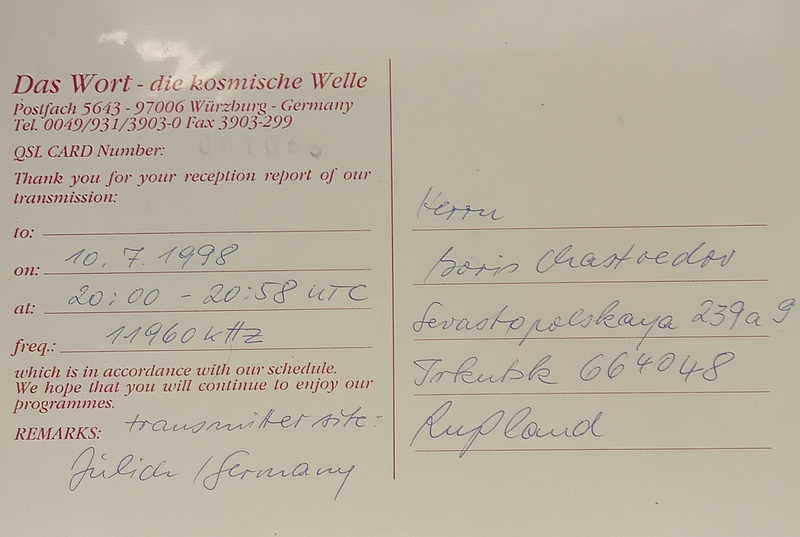 Das Wort - die kosmische Welle
Postfach 5643 - 97006 Würzburg - Germany
Tel. 0049/931/3903-0 Fax 3903-299
QSL CARD Number:
Thank you for your reception report of our
transmission:
to:
on: 10. 7. 1998
at: 20:00 - 20:58 UTC
freq.: 11960 kHz
which is in accordance with our schedule.
We hope that you will continue to enjoy our
programmes.
REMARKS: transmitter site:
Jülich / Germany
Herrn
Boris
Sevastopolskaya 239a 9
Irkutsk 664048
Rußland